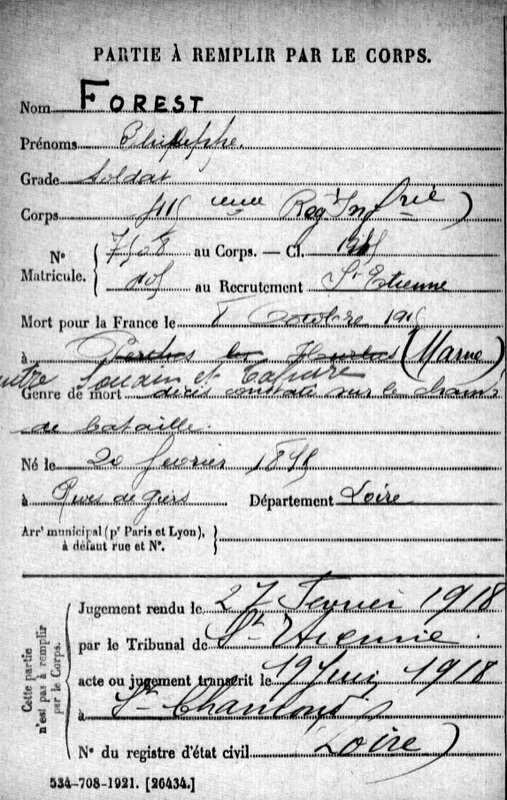 PARTIE À REMPLIR PAR LE CORPS.
Nom FOREST
Prénoms Philippe.
Grade Soldat
Corps 415 eme Reg^t Inf^rie)
N^o Matricule. { 7508 au Corps. — Cl. 1915
au Recrutement S^t Etienne
Mort pour la France le Octobre 1915
à Perthes les Hurlus (Marne)
entre Souain et Tahure
Genre de mort décès constaté sur le champ
de bataille.
Né le 20 février 1895
à Rives de giers Département Loire
Arr^t municipal (p^r Paris et Lyon), à défaut rue et N^o. }
Cette partie n'est pas à remplir par le Corps.
Jugement rendu le 27 Fevrier 1918
par le Tribunal de S^t Etienne
acte ou jugement transcrit le 19 Juin 1918
à S^t Chamond
N^o du registre d'état civil (Loire)
534-708-1921. [26434.]